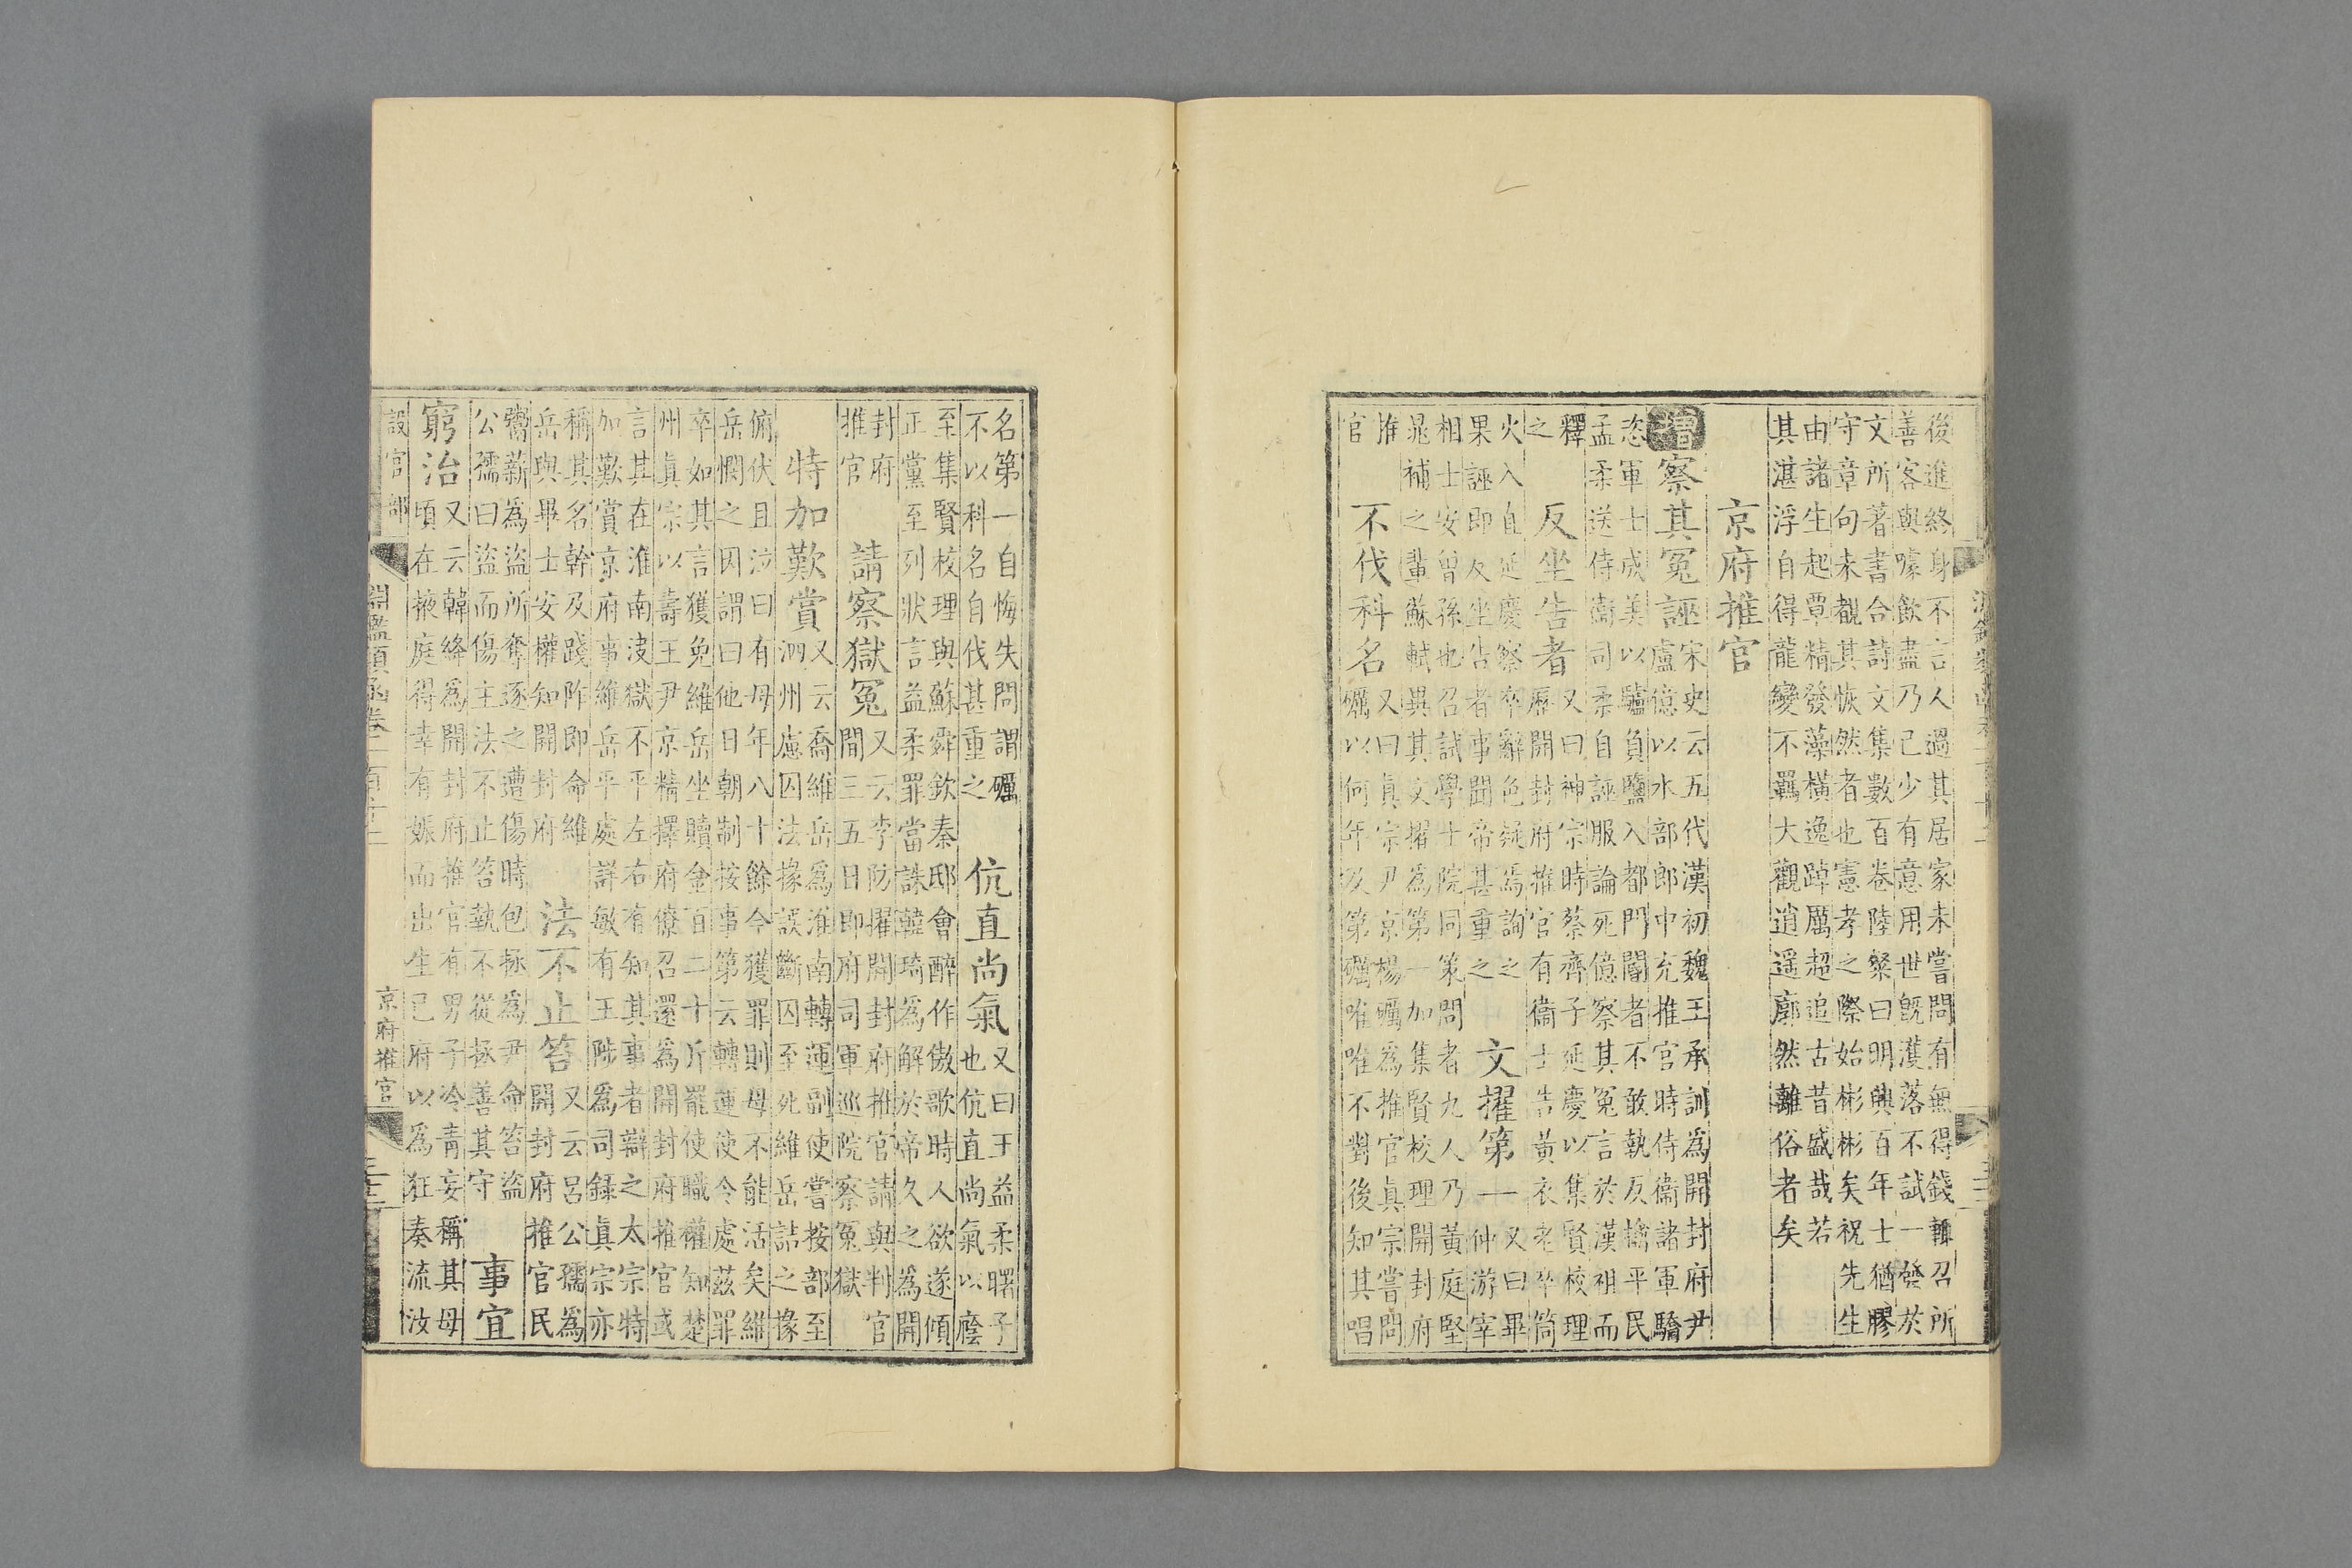 後進終身不言人過其居家未嘗問有無得錢輙召所
善客與㗲飲盡乃已少有意用世既濩落不試一發於
文所著書合詩文集數百卷陸粲曰明興百年士猶膠
守章句未覩其恢然者也憲孝之際始彬彬矣祝先生
由諸生起覃精發藻橫逸踔厲超追古昔盛哉若
其湛浮自得龍變不羈大觀逍遥廓然離俗者矣
京府推官
增察其冤誣宋史云五代漢初魏王承訓為開封府尹
盧億以水部郎中充推官時侍衞諸軍驕
恣軍士成美以驢負鹽入都門閽者不敢執反擒平民
孟柔送侍衞司柔自誣服論死億察其冤言於漢祖而
釋
之
反坐告者又曰神宗時蔡齊子延慶以集賢校理
歷開封府推官有衞士告黃衣老卒筒
火入直延慶察卒辭色疑焉詢之
果誣即反坐告者事聞帝甚重之
文擢第一又曰畢
仲游宰
相士安曾孫也召試學士院同策問者九人乃黃庭堅
晁補之輩蘇軾異其文擢為第一加集賢校理開封府
推
官
不伐科名又曰真宗尹京楊礪為推官真宗嘗問
礪以何年及第礪唯唯不對後知其唱
名第一自悔失問謂礪
不以科名自伐甚重之
伉直尚氣又曰王益柔曙子
也伉直尚氣以廕
至集賢校理與蘇舜欽秦邸會醉作傲歌時人欲遂傾
正黨至列狀言益柔罪當誅韓琦為解於帝久之為開
封府
推官
請察獄冤又云李防擢開封府推官請與判官
間三五日即府司軍巡院察冤獄
特加歎賞又云喬維岳為淮南轉運副使嘗按部至
泗州慮囚法掾誤斷囚至死維岳詰之掾
俯伏且泣曰有母年八十餘今獲罪則母不能活矣維
岳憫之因謂曰他日朝制按事第云轉運使令處茲罪
卒如其言獲免維岳坐贖金百二十斤罷使職權知楚
州真宗以壽王尹京精擇府僚召還為開封府推官或
言其在淮南決獄不平左右有知其事者辯之太宗特
加歎賞京府事維岳平處詳敏有王陟為司錄真宗亦
稱其名幹及踐阼即命維
岳與畢士安權知開封府
法不止笞又云呂公孺為
開封府推官民
鬻薪為盜所奪逐之遭傷時包拯為尹命笞盜
公孺曰盜而傷主法不止笞執不從拯善其守
事宜
窮治又云韓絳為開封府推官有男子冷青妄稱其母
頃在掖庭得幸有娠而出生已府以為狂奏流汝
設官部
淵鑑類函卷一百十二
京府推官